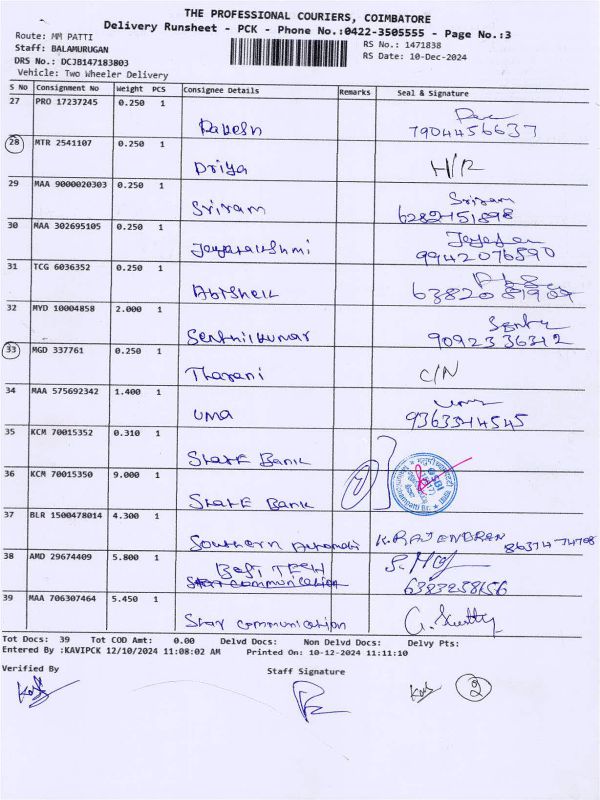 THE PROFESSIONAL COURIERS, COIMBATORE
Delivery Runsheet - PCK - Phone No.:0422-3505555 - Page No.:3
Route: MM PATTI
Staff: BALAMURUGAN
DRS No.: DCJB147183803
Vehicle: Two Wheeler Delivery
RS No.: 1471838
RS Date: 10-Dec-2024
S No Consignment No Weight PCS Consignee Details Remarks Seal & Signature
27 PRO 17237245 0.250 1
Rakesh 7904456637
28 MTR 2541107 0.250 1
Priya H/R
29 MAA 9000020303 0.250 1 Sriram
Sriram 6282151898
30 MAA 302695105 0.250 1
Jayalakshmi 9942076590
31 TCG 6036352 0.250 1
Abishek 6382081909
32 MYD 10004858 2.000 1
Senthilkumar 9092336312
33 MGD 337761 0.250 1
Tharani C/N
34 MAA 575692342 1.400 1
Uma 9363344545
35 KCM 70015352 0.310 1
State Bank
36 KCM 70015350 9.000 1
State Bank
37 BLR 1500478014 4.300 1
Southern K.RAJENDRAN 86374-74708
38 AMD 29674409 5.800 1
BEST TECH
Star communication 6383258156
39 MAA 706307464 5.450 1
Star communication
Tot Docs: 39 Tot COD Amt: 0.00 Delvd Docs: Non Delvd Docs: Delvy Pts:
Entered By :KAVIPCK 12/10/2024 11:08:02 AM Printed On: 10-12-2024 11:11:10
Verified By Staff Signature
2